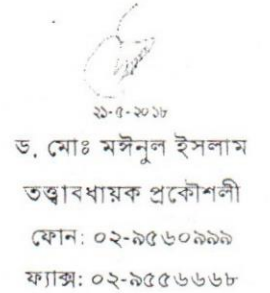 ২১-৫-২০১৮
ড. মোঃ মঈনুল ইসলাম
তত্ত্বাবধায়ক প্রকৌশলী
ফোন: ০২-৯৫৬০৯৯৯
ফ্যাক্স: ০২-৯৫৫৬৬৬৮